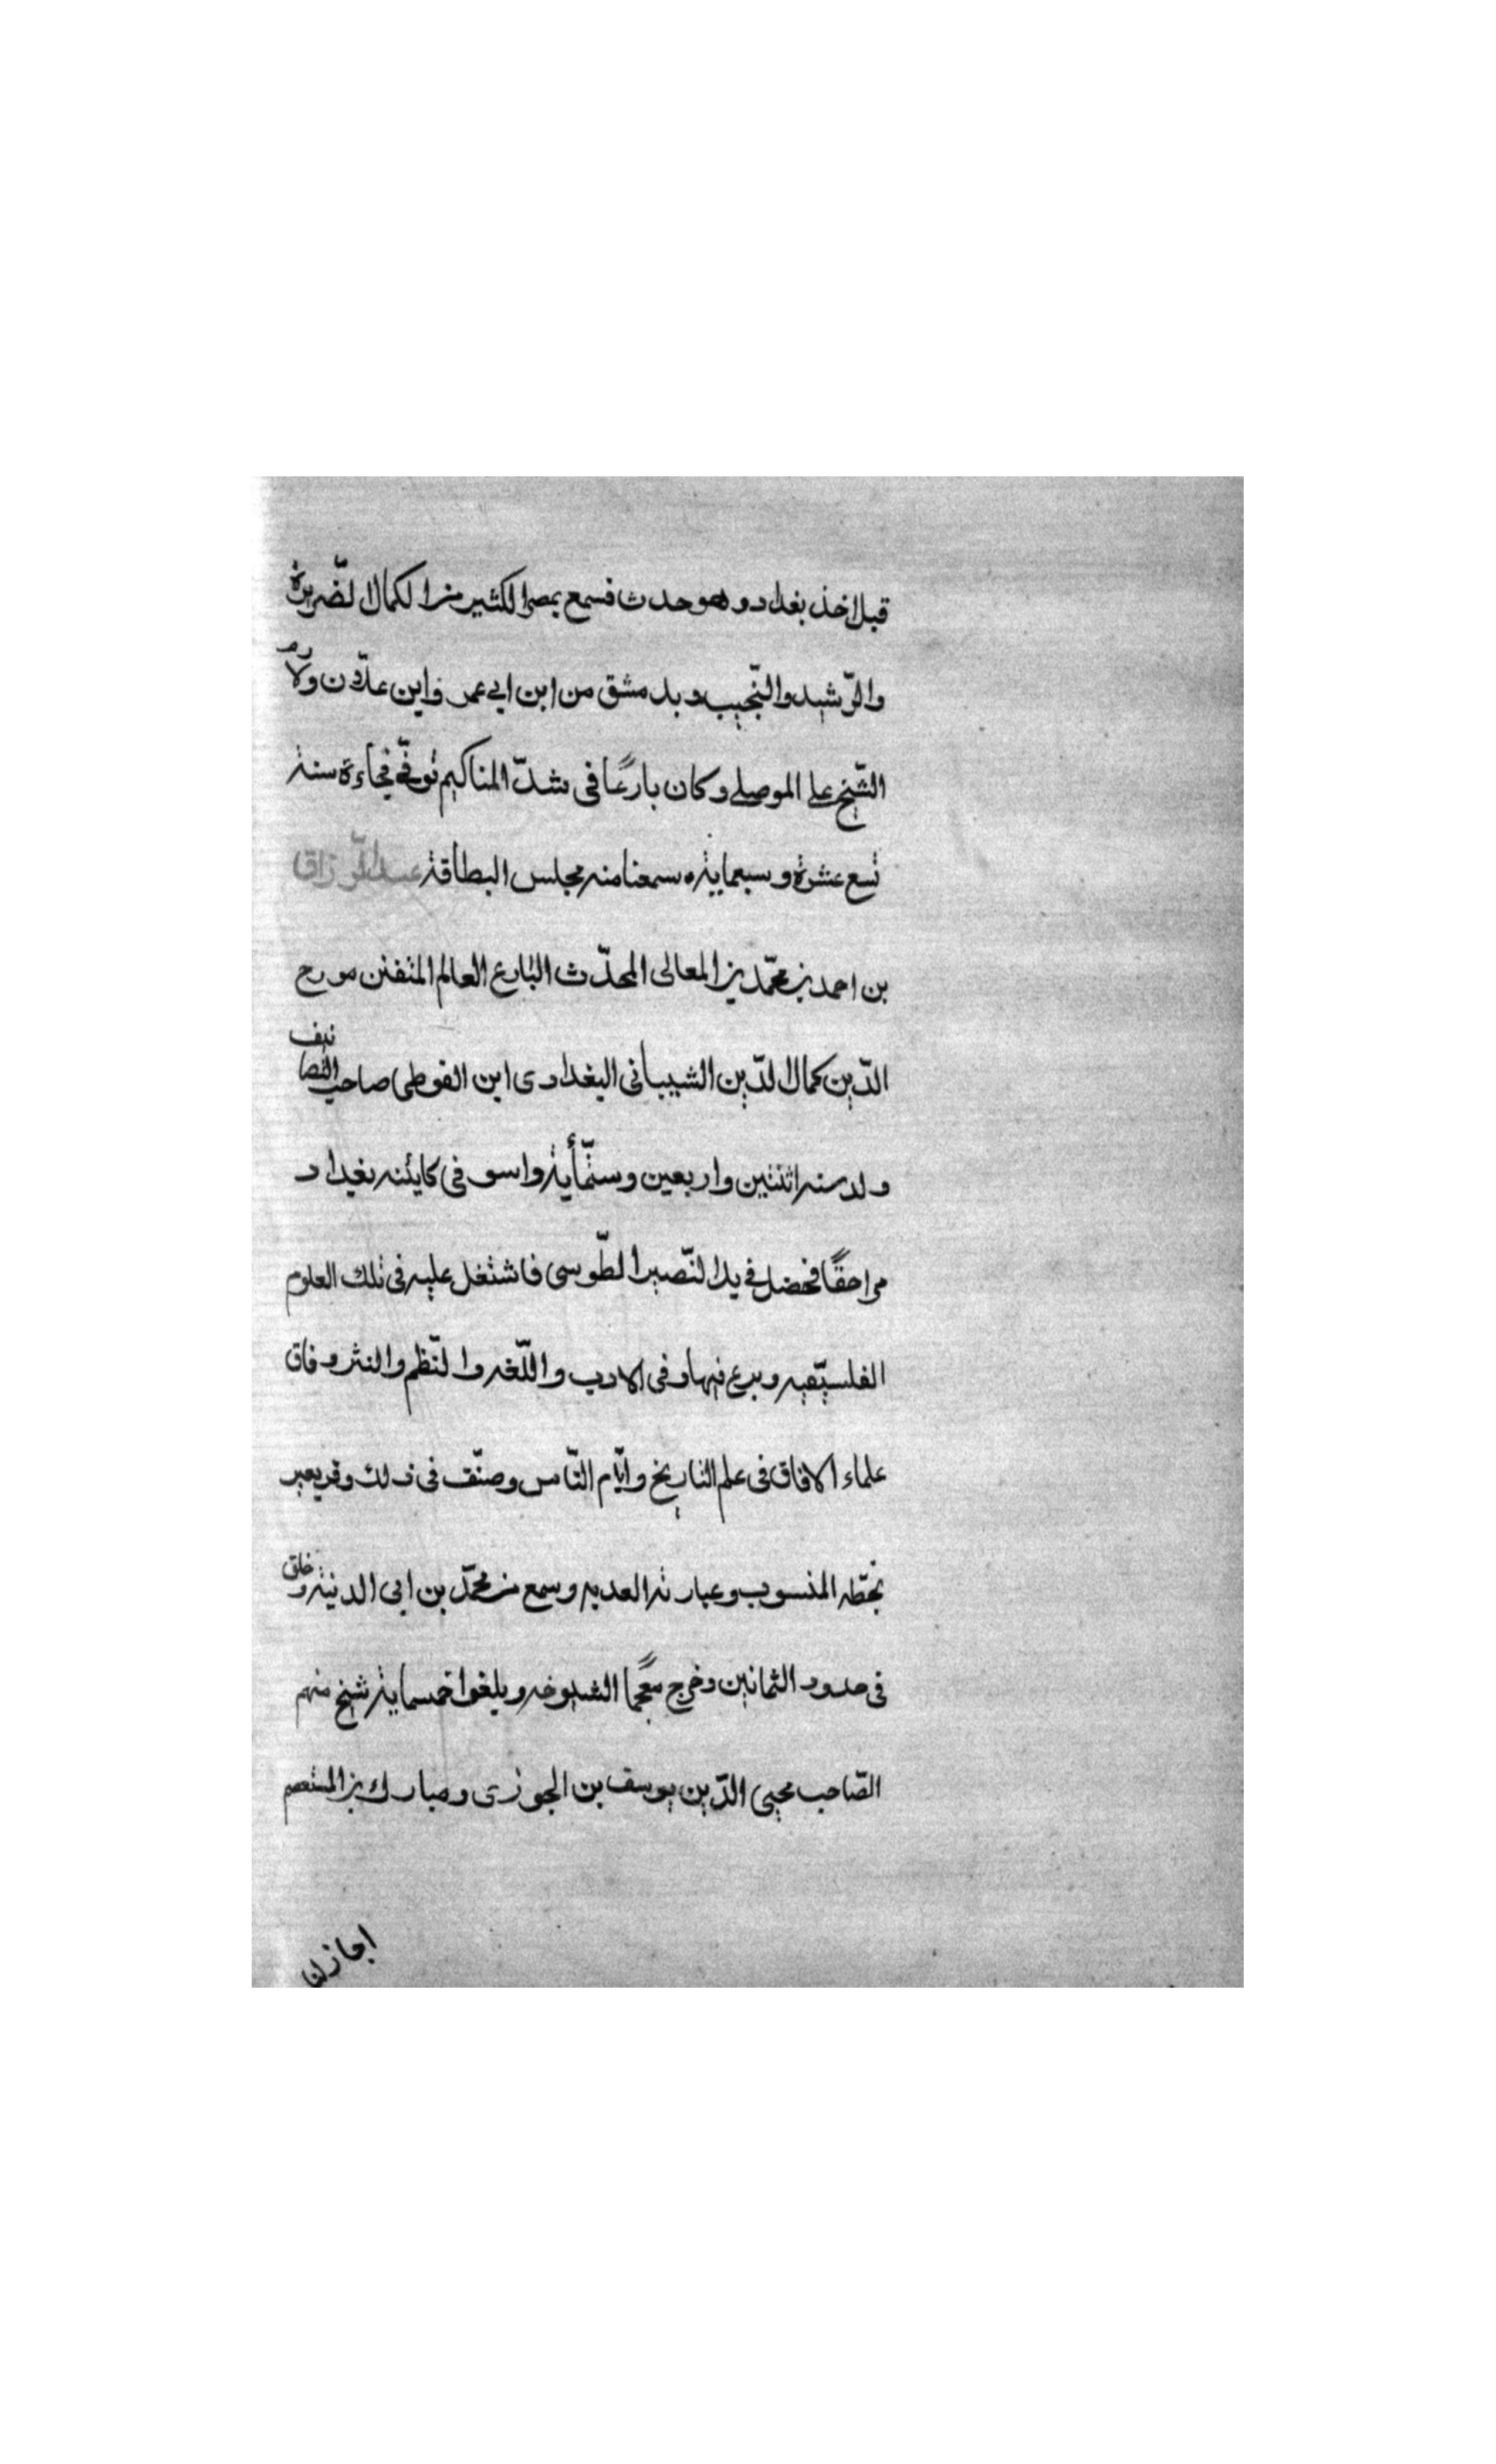 قبل اخذ بغداد وهو حدث فسمع بمصر الكثير من الكمال الضرير
والرّشيد والنّجيب وبدمشق من ابن ابي عمر وابن علّان ولازم
الشّيخ علي الموصلي وكان بارعًا في شدّ المناكيم توفّي فجاءة سنة
تسع عشرة وسبعماية سمعنا منه مجلس البطاقة عبد الرّزاق
بن احمد بن محمّد بن المعالى المحدّث البارع العالم المتفنن مورح
الدّين كمال الدّين الشيباني البغدادى ابن الفوطى صاحب التصانيف
ولد سنه اثنتين واربعين وستّمأية واسو في كاينه بغداد
مراحقًا فحضل في يد النّصير الطّوسى فاشتغل عليه في تلك العلوم
الفلسيّقيه وبرع فيها وفى الادب واللّغه والنّظم والنثر وفاق
علماء الافاق في علم التاريخ وايّام النّاس وصنّف في ذلك وقريعبر
بخطّه المنسوب وعبارته العديه وسمع من محمّد بن ابى الدنية وخلق
في حدود الثمانين وخرج معجمًا الشيوخه ويلغوا خمسماية شيخ منهم
الصّاحب محيي الدّين يوسف بن الجوزى ومبارك بن المستعصم
اجاز لنا